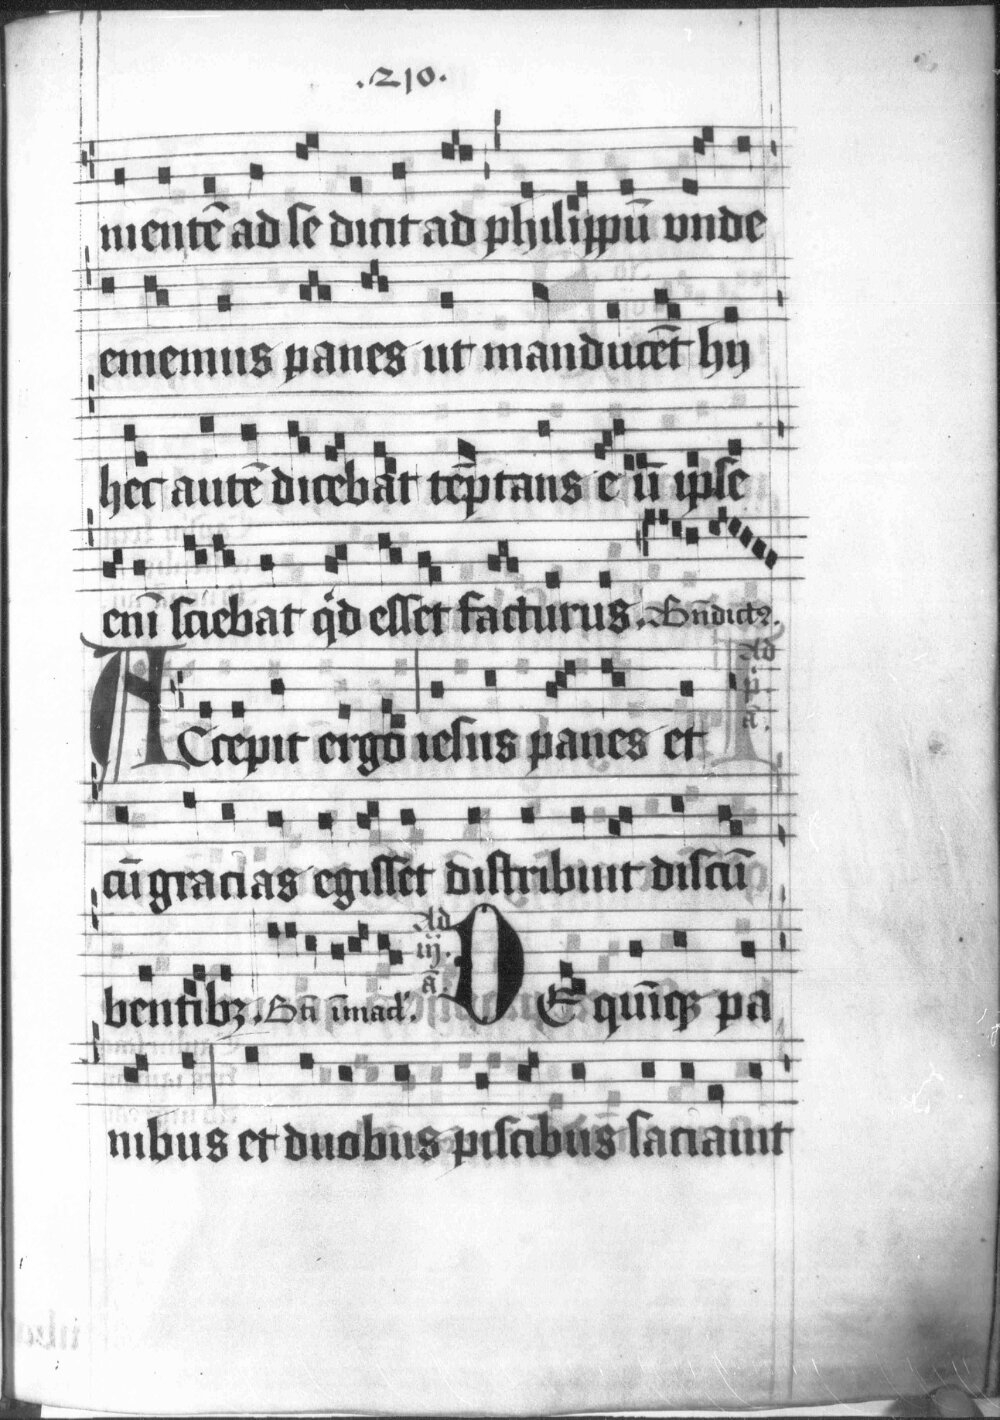 .210.
mentē ad se dicit ad philippū vnde
ememus panes ut manducēt hij
hec autē dicebat tēptans eūipse
enī sciebat qd esset facturus. Bn̄dictꝰ.
Ad
p̄.
ā.
ACcepit ergo iesus panes et
cū gracias egisset distribuit discū
bentibꝫ. Bti īmacl'.
Ad
iij.
ā.
DE quīqꝫ pa
nibus et duobus piscibus saciauit